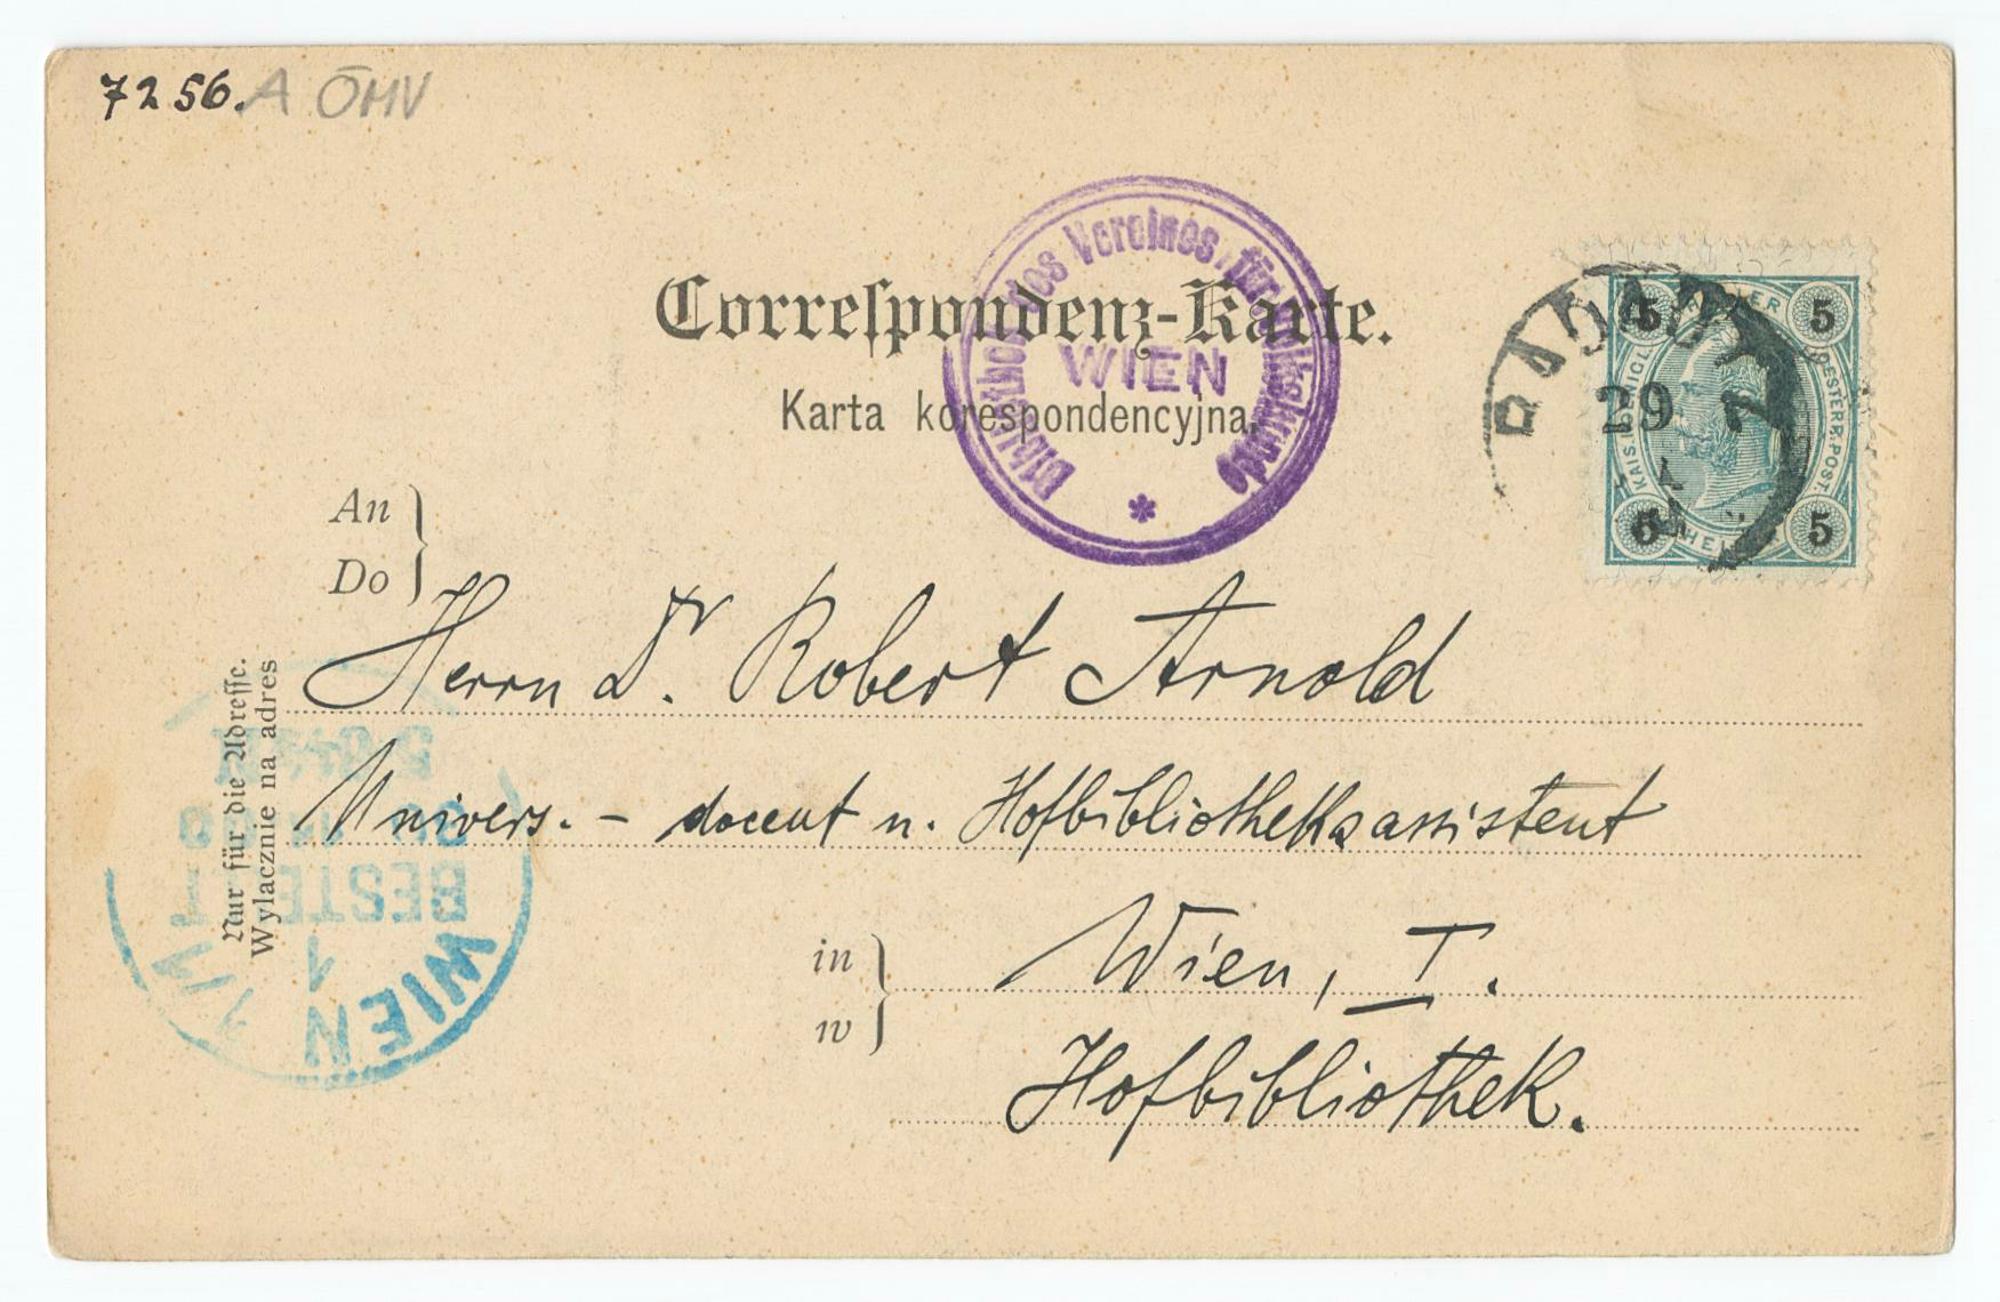 7256. A ÖMV
Correspondenz-Karte.
Karta korespondencyjna.
des Vereines für Volkskunde
WIEN
*
5 5
KAIS. KÖNIGL. OESTERR. POST.
29
5 5
An
Do
Herrn Dr. Robert Arnold
Univers. - docent u. Hofbibliotheksassistent
in
w
Wien, I.
Hofbibliothek.
Nur für die Adresse.
Wylacznie na adres
BESTELLT
1
WIEN